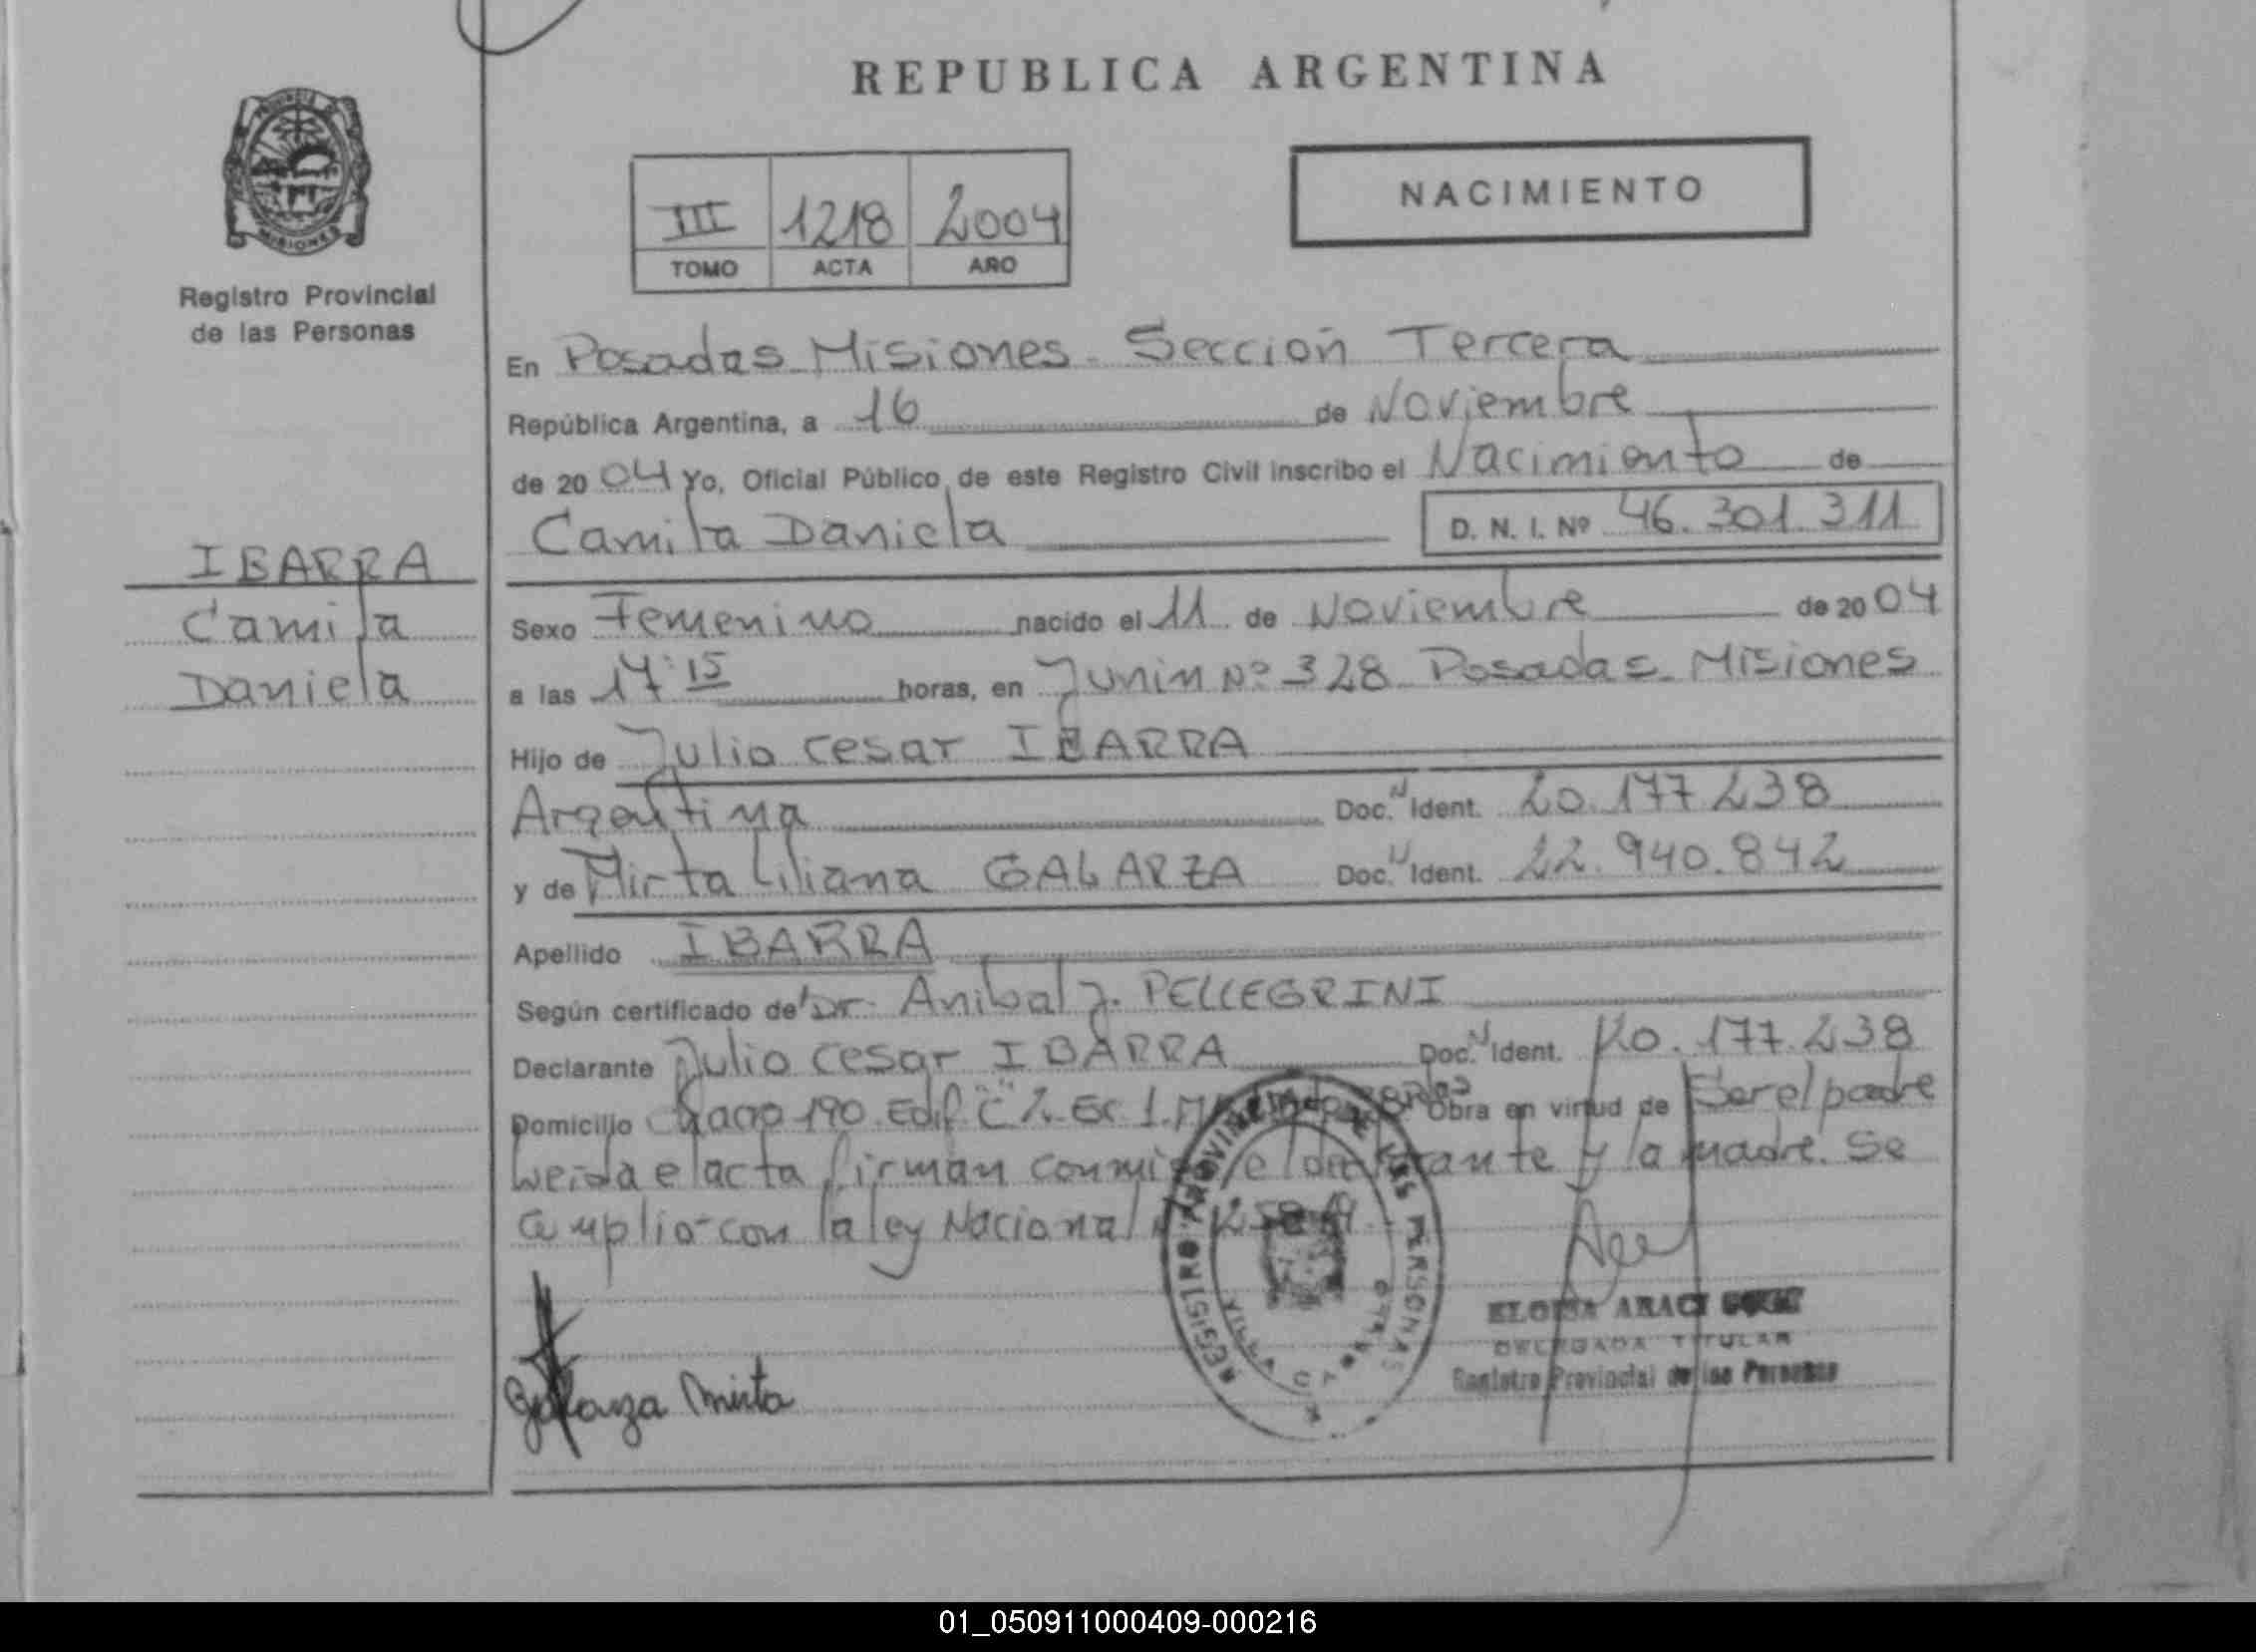 REPUBLICA ARGENTINA
PROVINCIA DE
MISIONES
Registro Provincial
de las Personas
III 1218 2004
TOMO ACTA AÑO
NACIMIENTO
En Posadas Misiones - Sección Tercera
República Argentina, a 16 de Noviembre
de 2004 Yo, Oficial Público de este Registro Civil inscribo el Nacimiento de
Camila Daniela D. N. I. Nº 46.301.311
IBARRA
Camila
Daniela
Sexo Femenino nacido el 11 de Noviembre de 2004
a las 17:15 horas, en Junin Nº 328 Posadas - Misiones
Hijo de Julio Cesar IBARRA
Argentina Doc. N Ident. 20.177.238
y de Mirta Liliana GALARZA Doc. N Ident. 22.940.842
Apellido IBARRA
Según certificado de Dr. Anibal J. PELLEGRINI
Declarante Julio Cesar IBARRA Doc. N Ident. 20.177.238
Domicilio Chaco 190 Edif "C" Obra en virtud de Ser el padre
Leida el acta firman conmigo el declarante y la madre. Se
cumplio con la ley Nacional
REGISTRO PROVINCIAL DE LAS PERSONAS
Galarza Mirta
DELEGADA TITULAR
Registro Provincial de las Personas
01_050911000409-000216